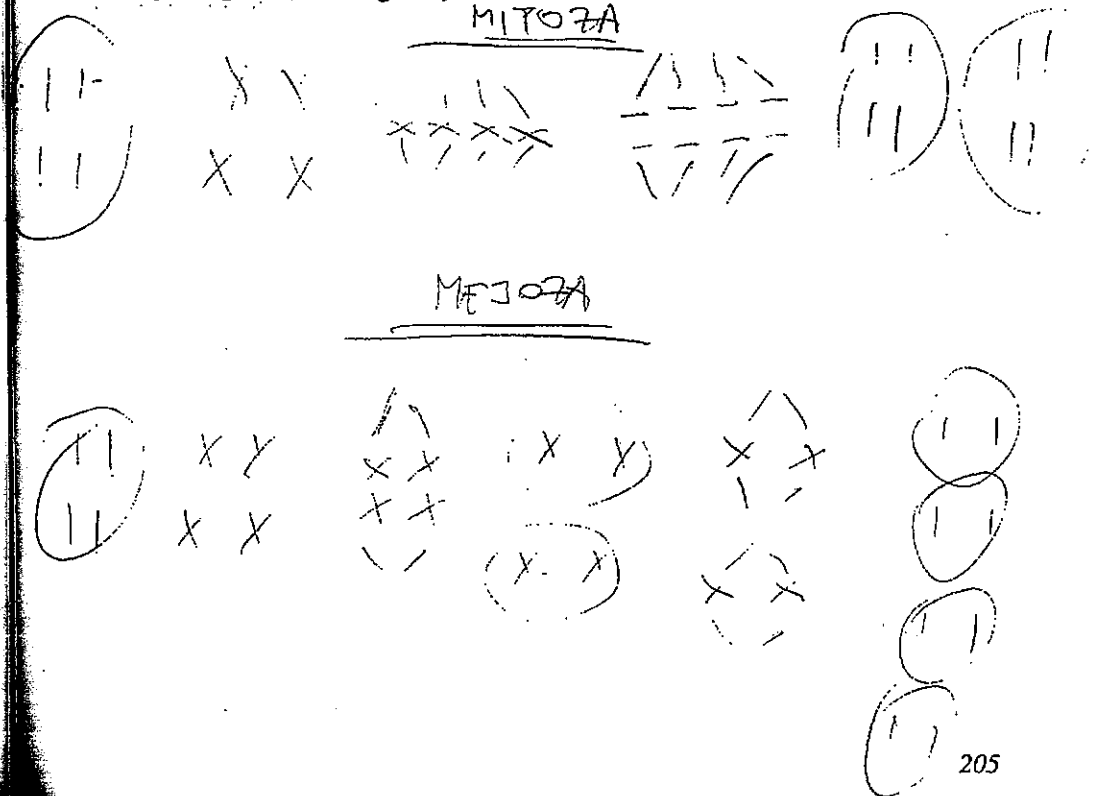 MITOZA
MEJOZA
205